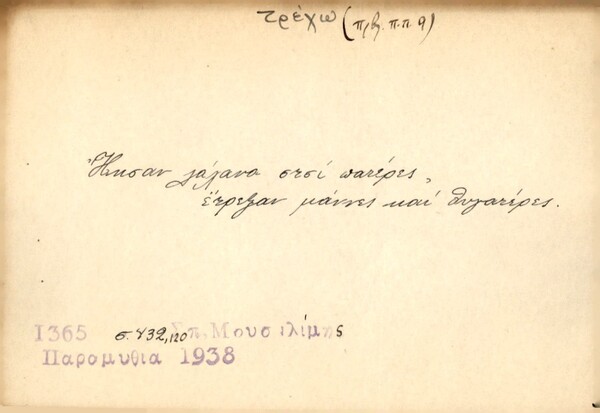 τρέχω (πρβ. π.π. 9)
στσί πατέρες,
ἔτρεξαν μάννες καί θυγατέρες.
1365 σ. 432,120 Σπ. Μουσελίμης
Παραμυθια 1938